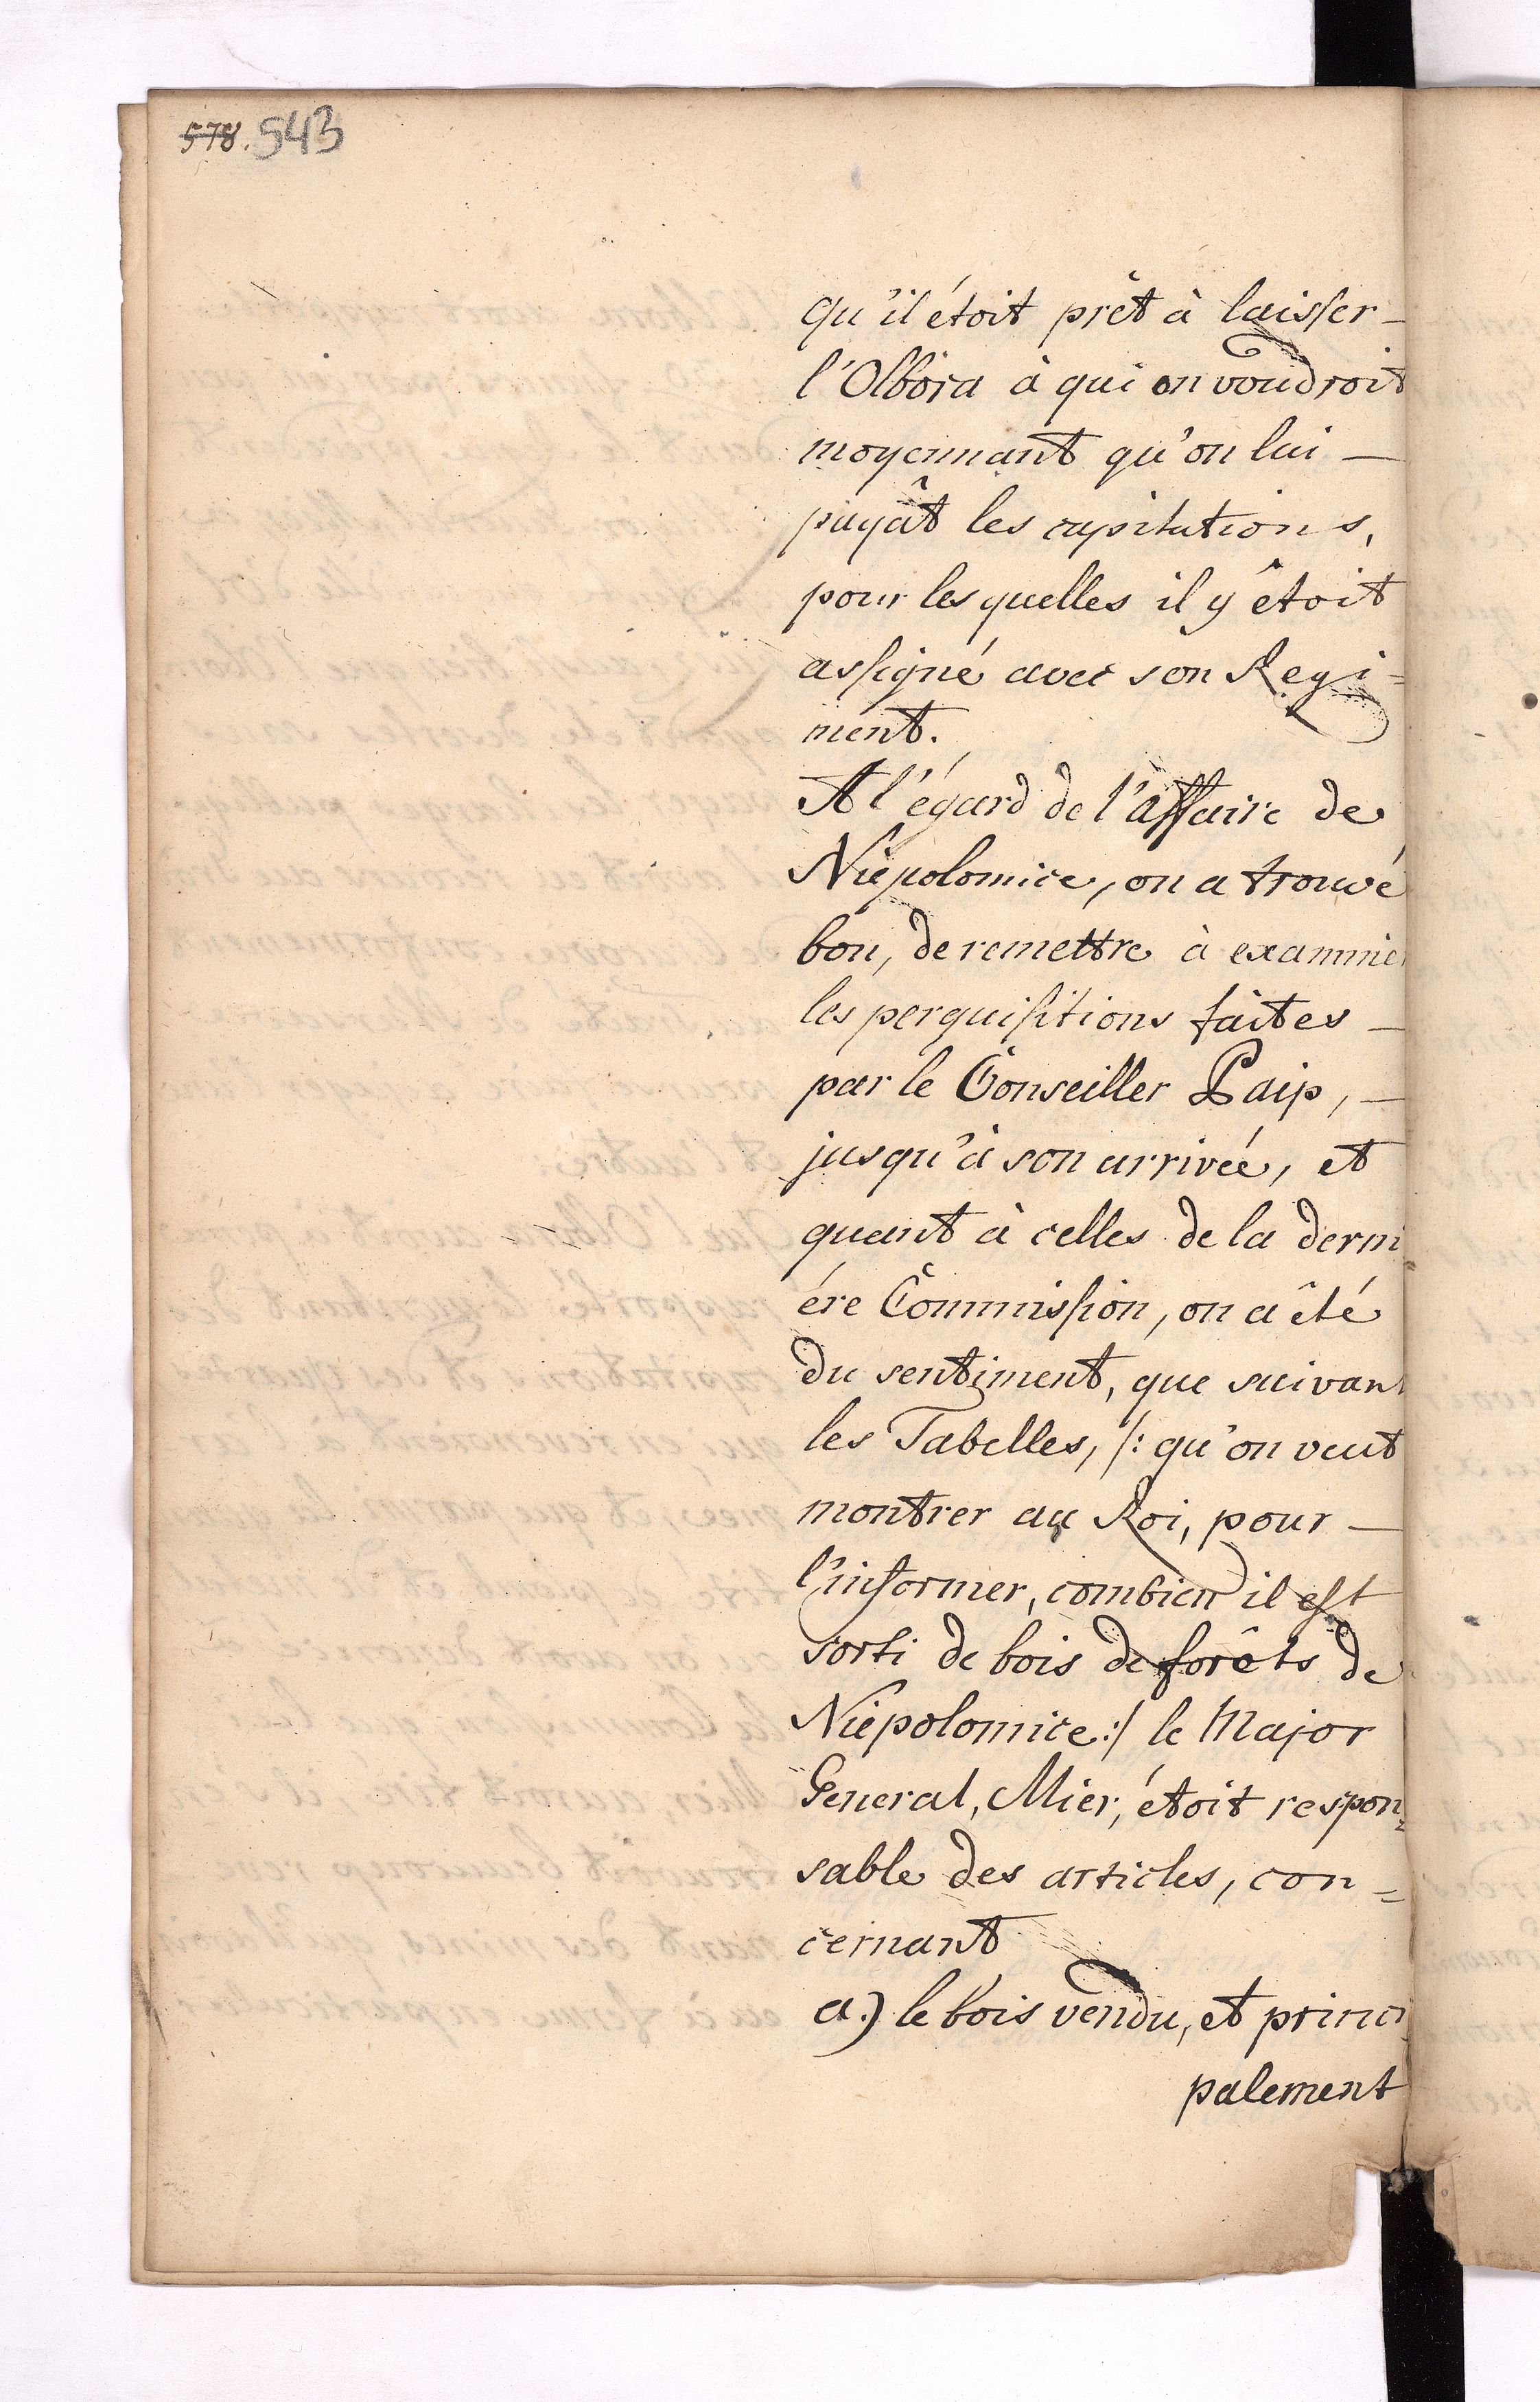 578. 543
qu'il étoit prêt à laisser
l'Olbora à qui on voudroit
moyennant qu'on lui
payât les capitations,
pour les quelles il y êtoit
assigné avec son Regi=
ment.
A l'égard de l'affaire de
Niepolomice, on a trouvé
bon, de remettre à examiner
les perquisitions faites
par le Conseiller Paip,
jusqu'à son arrivée, et
quant à celles de la derni
ére Commission, on a êté
du sentiment, que suivant
les Tabelles, /: qu'on veut
montrer au Roi, pour
l'informer, combien il est
sorti de bois de forêts de
Niepolomice :/ le Major
General, Mier, étoit respon=
sable des articles, con=
cernant
a.) le bois vendu, et princi
palement